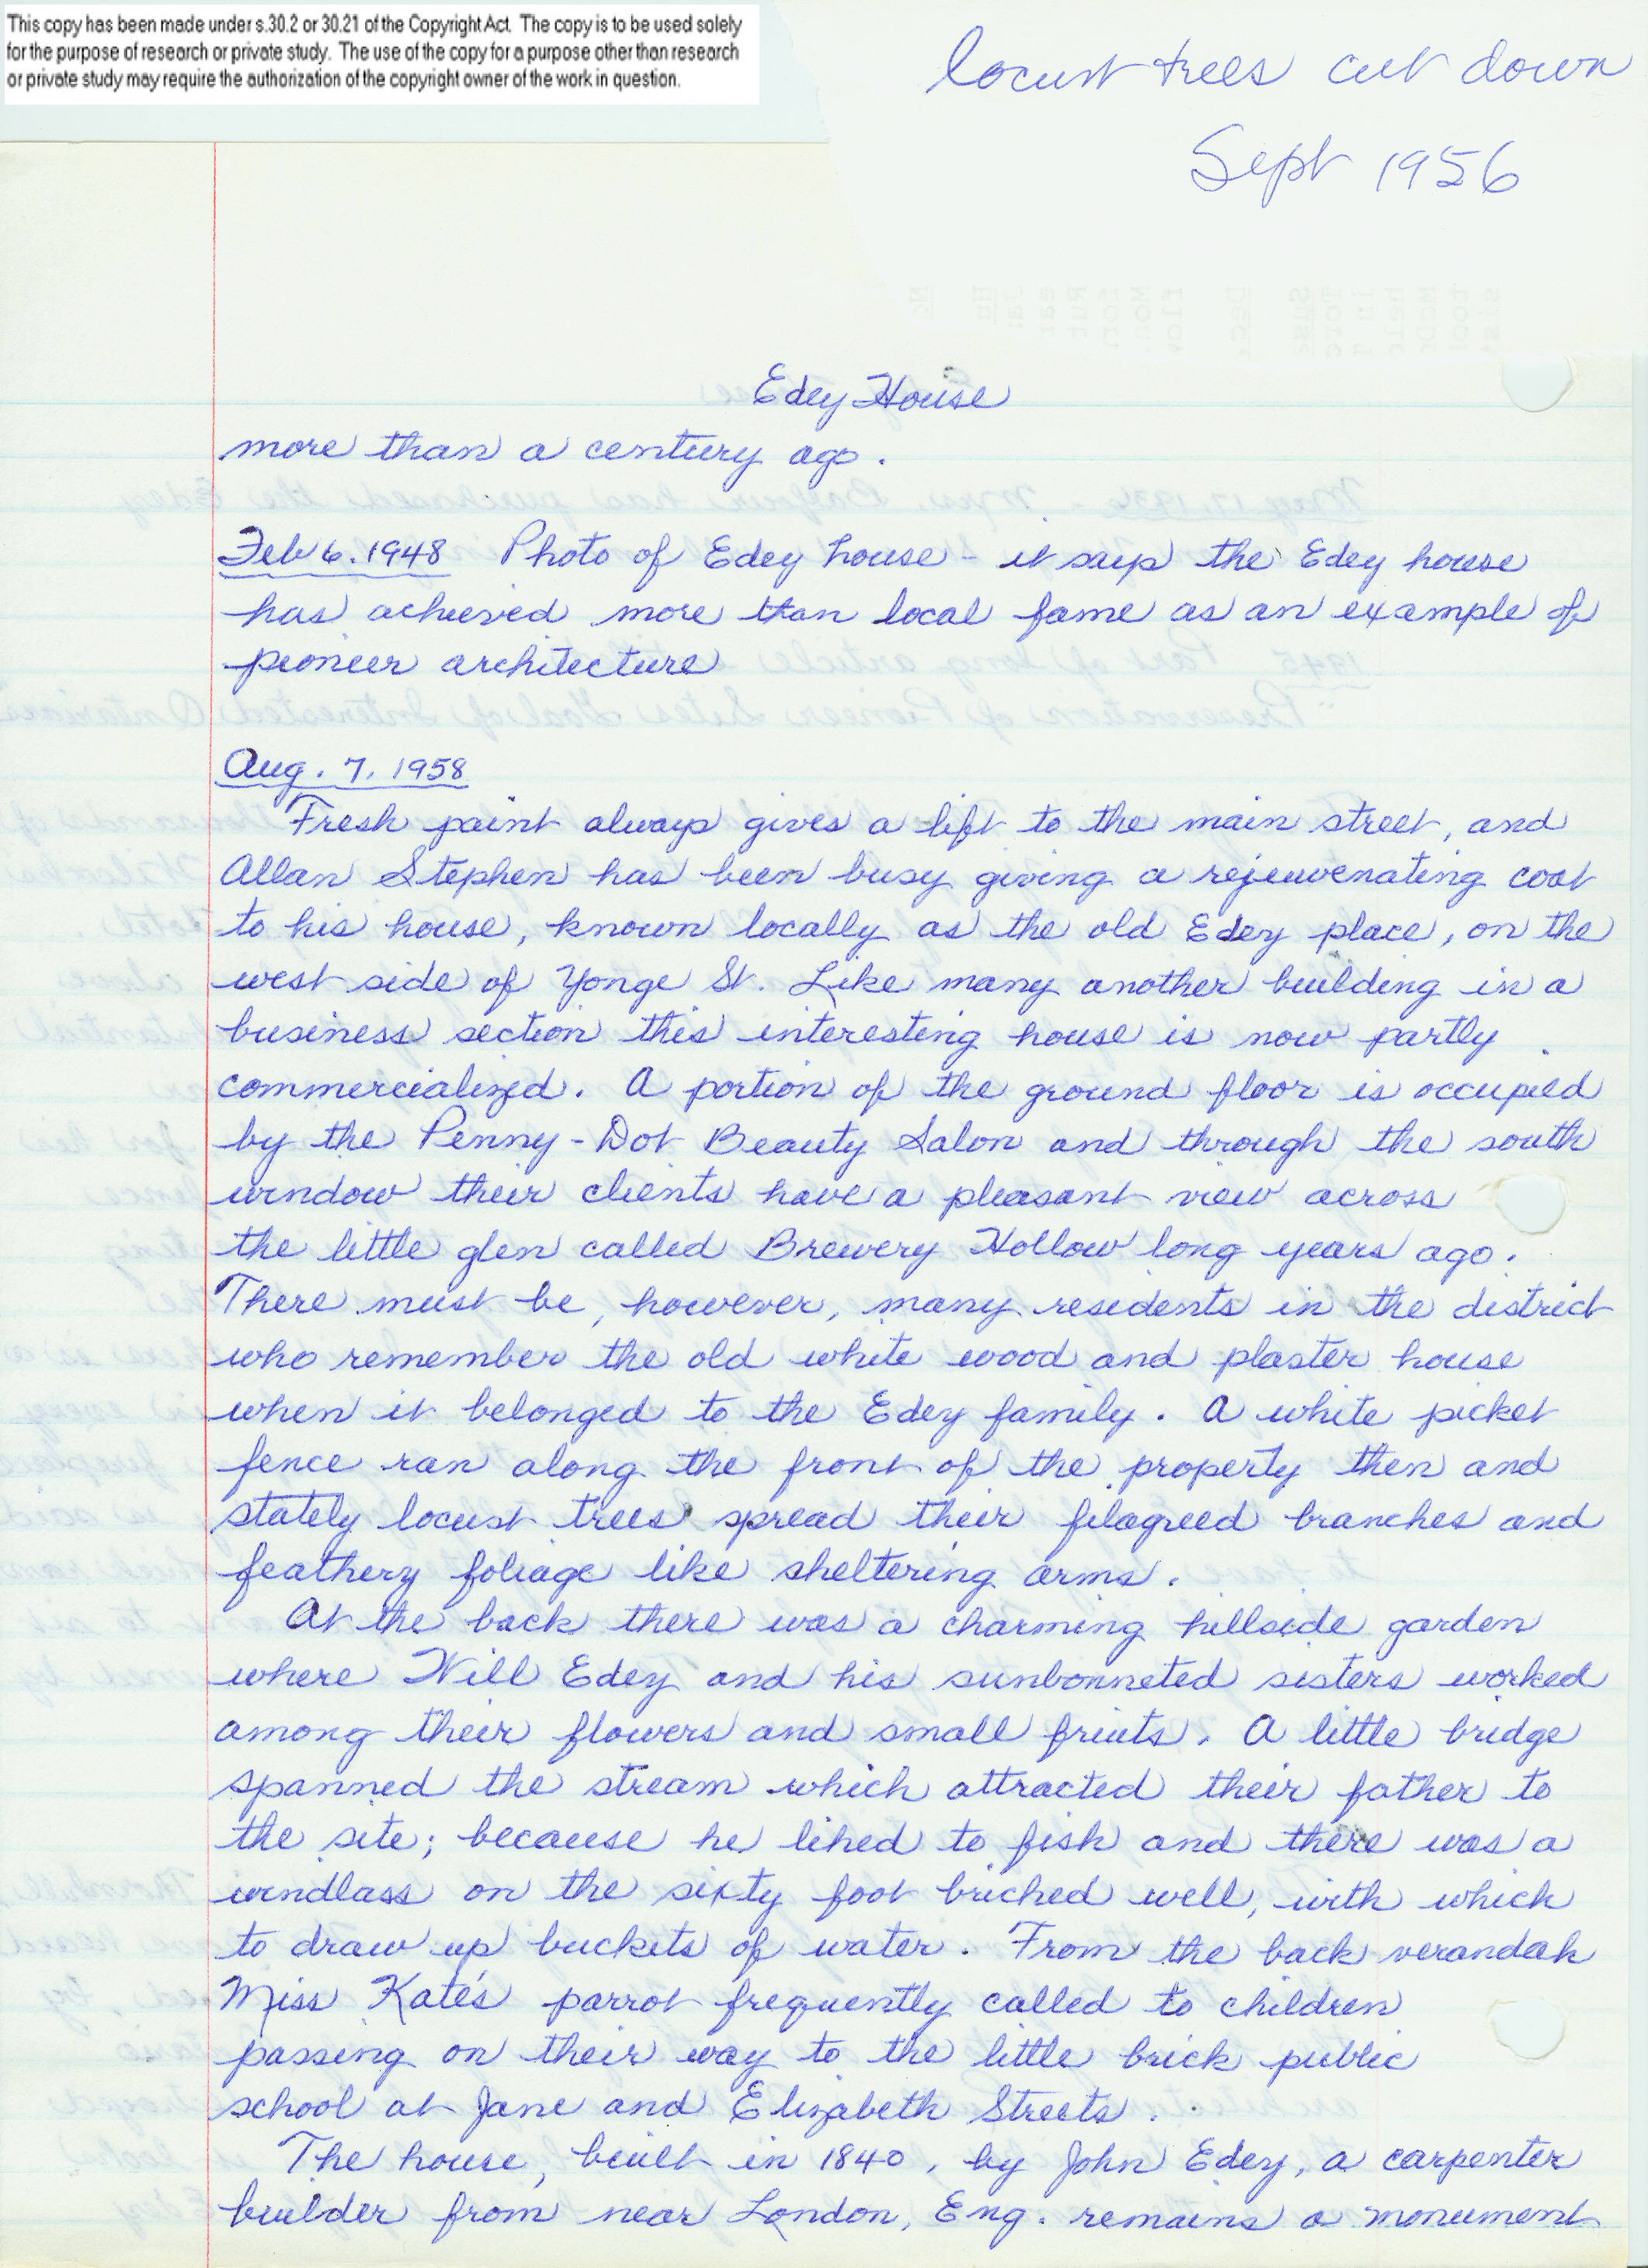 This copy has been made under s.30.2 or 30.21 of the Copyright Act. The copy is to be used solely
for the purpose of research or private study. The use of the copy for a purpose other than research
or private study may require the authorization of the copyright owner of the work in question.
locust trees cut down
Sept 1956
Edey House
more than a century ago.
Feb 6. 1948 Photo of Edey house - it says the Edey house
has achieved more than local fame as an example of
pioneer architecture
Aug. 7, 1958
Fresh paint always gives a lift to the main street, and
Allan Stephen has been busy giving a rejeuvenating coat
to his house, known locally as the old Edey place, on the
west side of Yonge St. Like many another building in a
business section this interesting house is now partly
commercialized. A portion of the ground floor is occupied
by the Penny-Dot Beauty Salon and through the south
window their clients have a pleasant view across
the little glen called Brewery Hollow long years ago.
There must be, however, many residents in the district
who remember the old white wood and plaster house
when it belonged to the Edey family. A white picket
fence ran along the front of the property then and
stately locust trees spread their filagreed branches and
feathery foliage like sheltering arms.
At the back there was a charming hillside garden
where Will Edey and his sunbonneted sisters worked
among their flowers and small fruits. A little bridge
spanned the stream which attracted their father to
the site; because he liked to fish and there was a
windlass on the sixty foot bricked well, with which
to draw up buckets of water. From the back verandah
Miss Kate's parrot frequently called to children
passing on their way to the little brick public
school at Jane and Elizabeth Streets.
The house, built in 1840, by John Edey, a carpenter
builder from near London, Eng. remains a monument